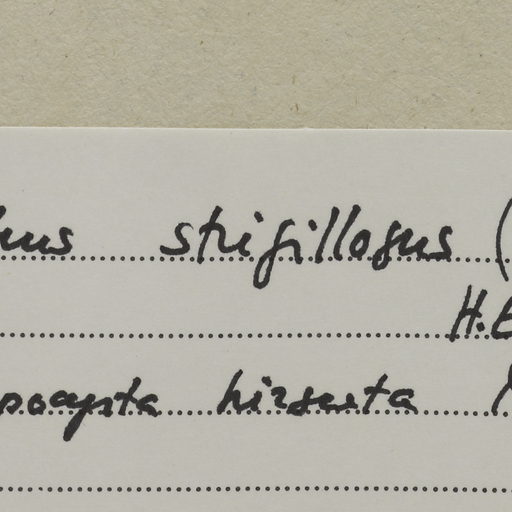 hus strigillosus (
H.E
pocysta hirsuta (